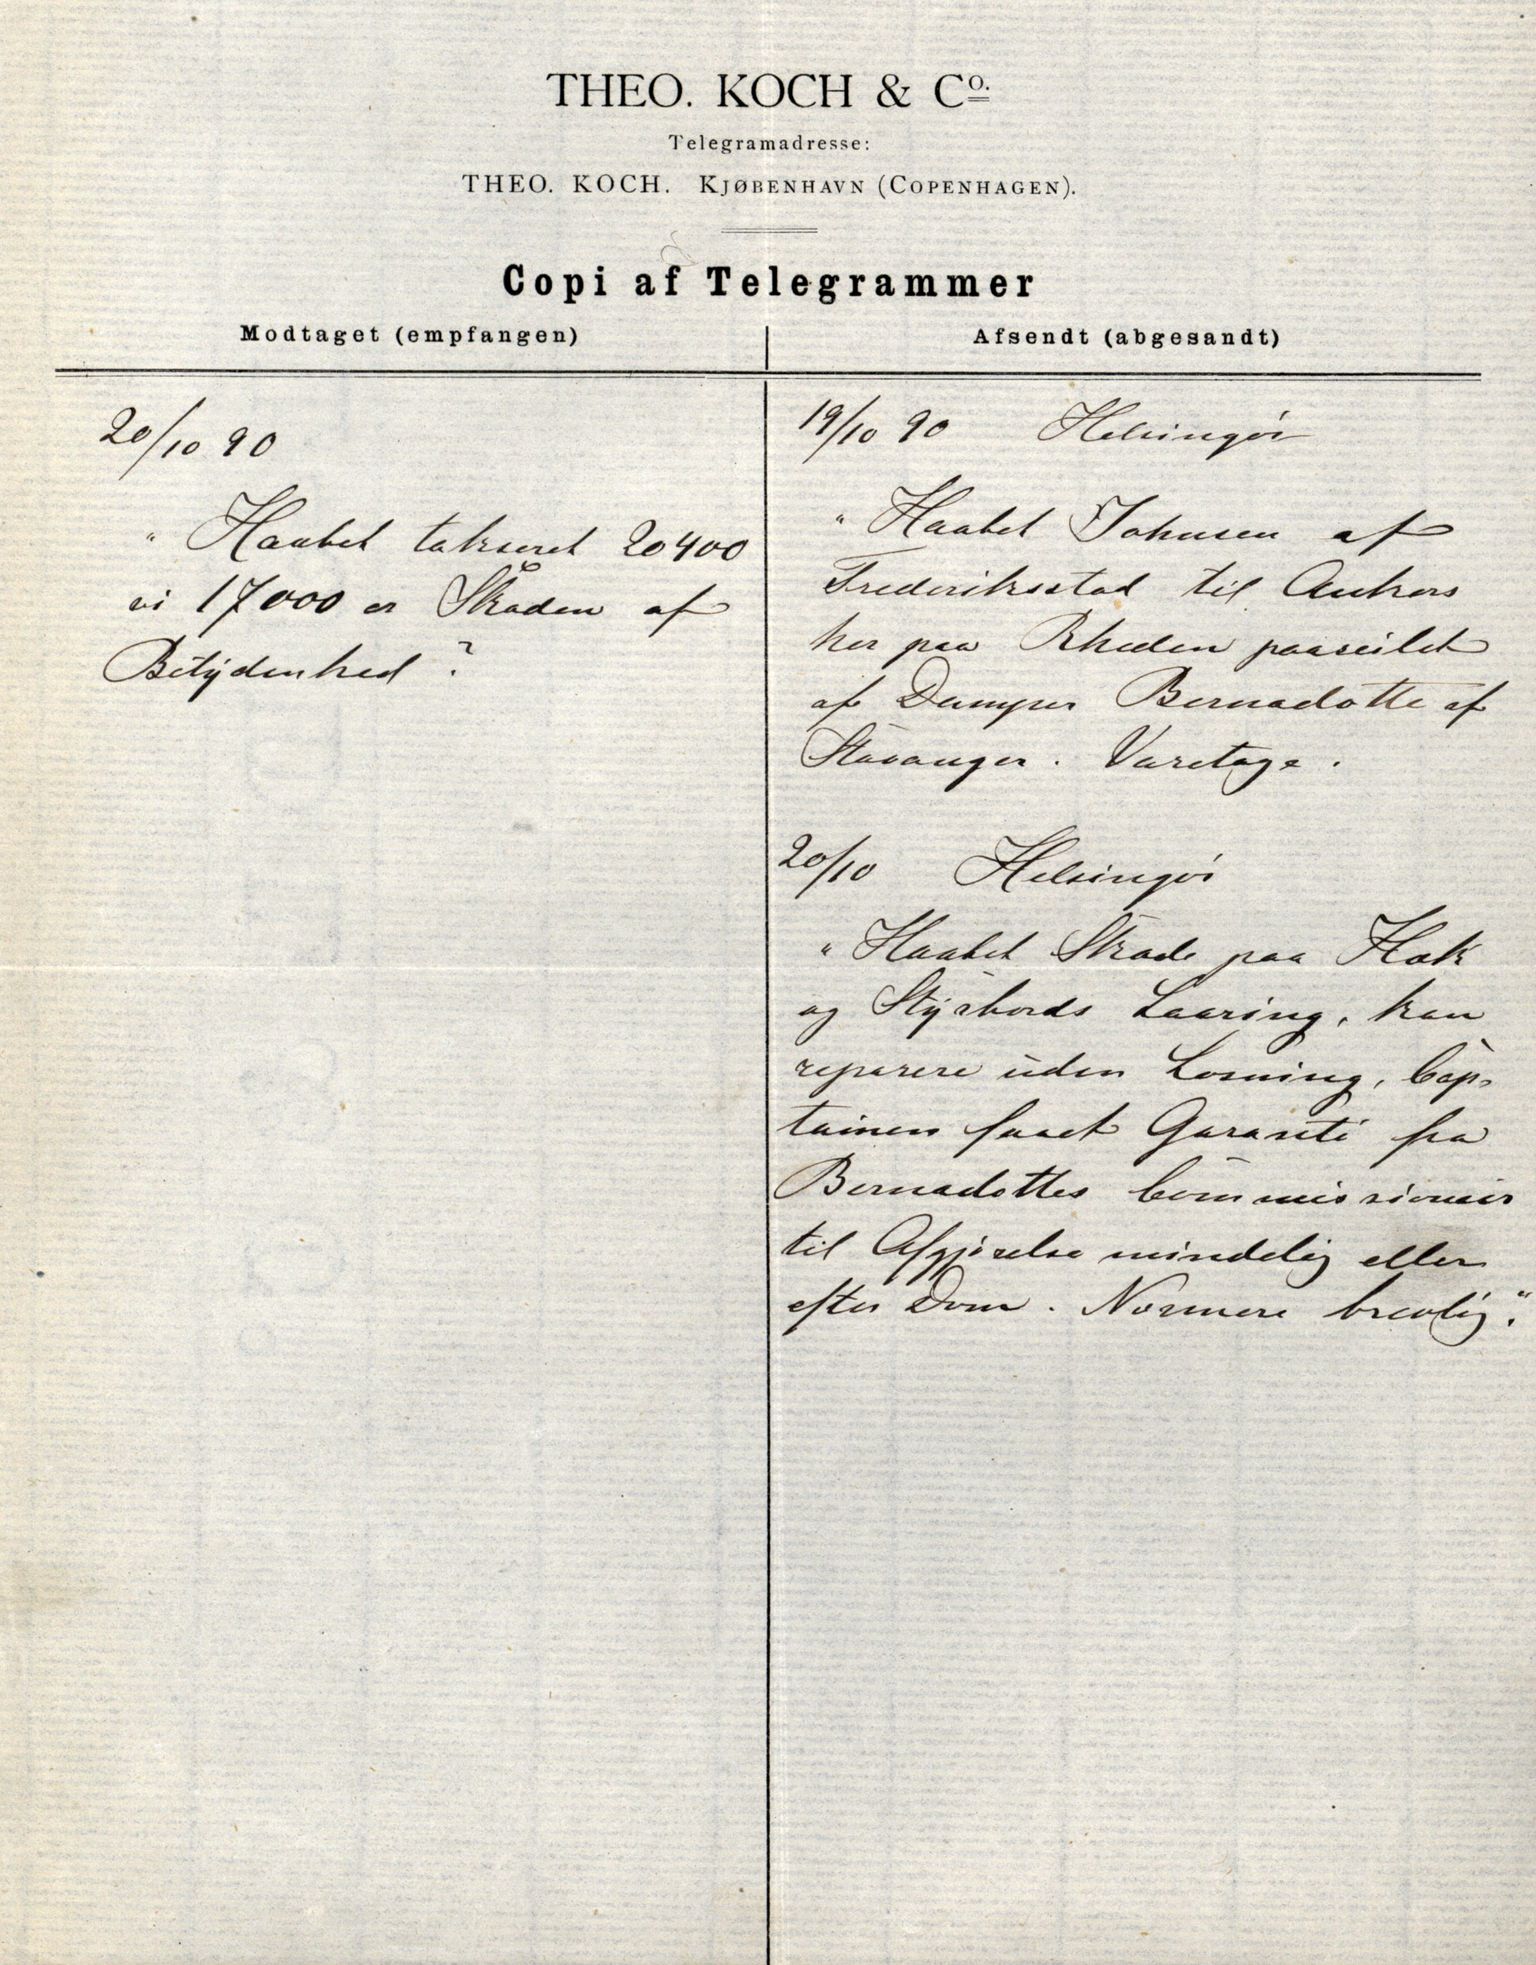 THEO. KOCH & Co.
Telegramadresse:
THEO. KOCH. KJØBENHAVN (COPENHAGEN).
Copi af Telegrammer
Modtaget (empfangen)
20/10 90
" Haabet takseret 20400
vi 17000 er Skaden af
Betydenhed ?
Afsendt (abgesandt)
19/10 90 Helsingör
" Haabet Johnsen af
Frederiksstad til Ankers
her paa Rheden paaseilet
af Damper Bernadotte af
Stavanger. Varetage.
20/10 Helsingör
" Haabet Skade paa Hæk
og Styrbords Laaring, kan
reparere uden Losning, Cap-
tainen faaet Garanti fra
Bernadottes Commissionair
til Afgjörelse mindelig eller
efter Dom. Nærmere brevlig."